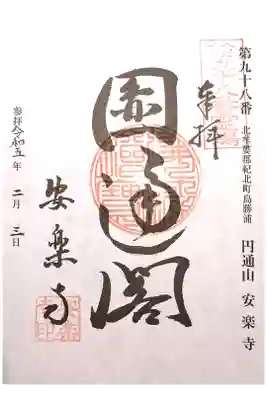 第九十八番 北牟婁郡紀北町島勝浦 円通山 安楽寺
奉拝
圓通閣
安楽寺
参拝令和五年 二月 三日